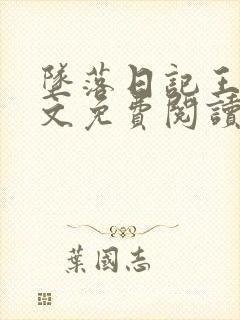 墜落日記王
文免費閱讀
葉國志